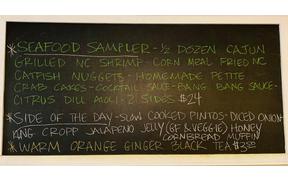 *SEAFOOD SAMPLER - ½ DOZEN CAJUN
GRILLED NC SHRIMP - CORN MEAL FRIED NC
CATFISH NUGGETS - HOMEMADE PETITE
CRAB CAKES - COCKTAIL SAUCE - BANG BANG SAUCE -
CITRUS DILL AIOLI - 2 SIDES $24
*SIDE OF THE DAY - SLOW COOKED PINTOS - DICED ONION -
KING CROPP JALAPENO JELLY (GF & VEGGIE) HONEY
CORNBREAD MUFFIN
*WARM ORANGE GINGER BLACK TEA